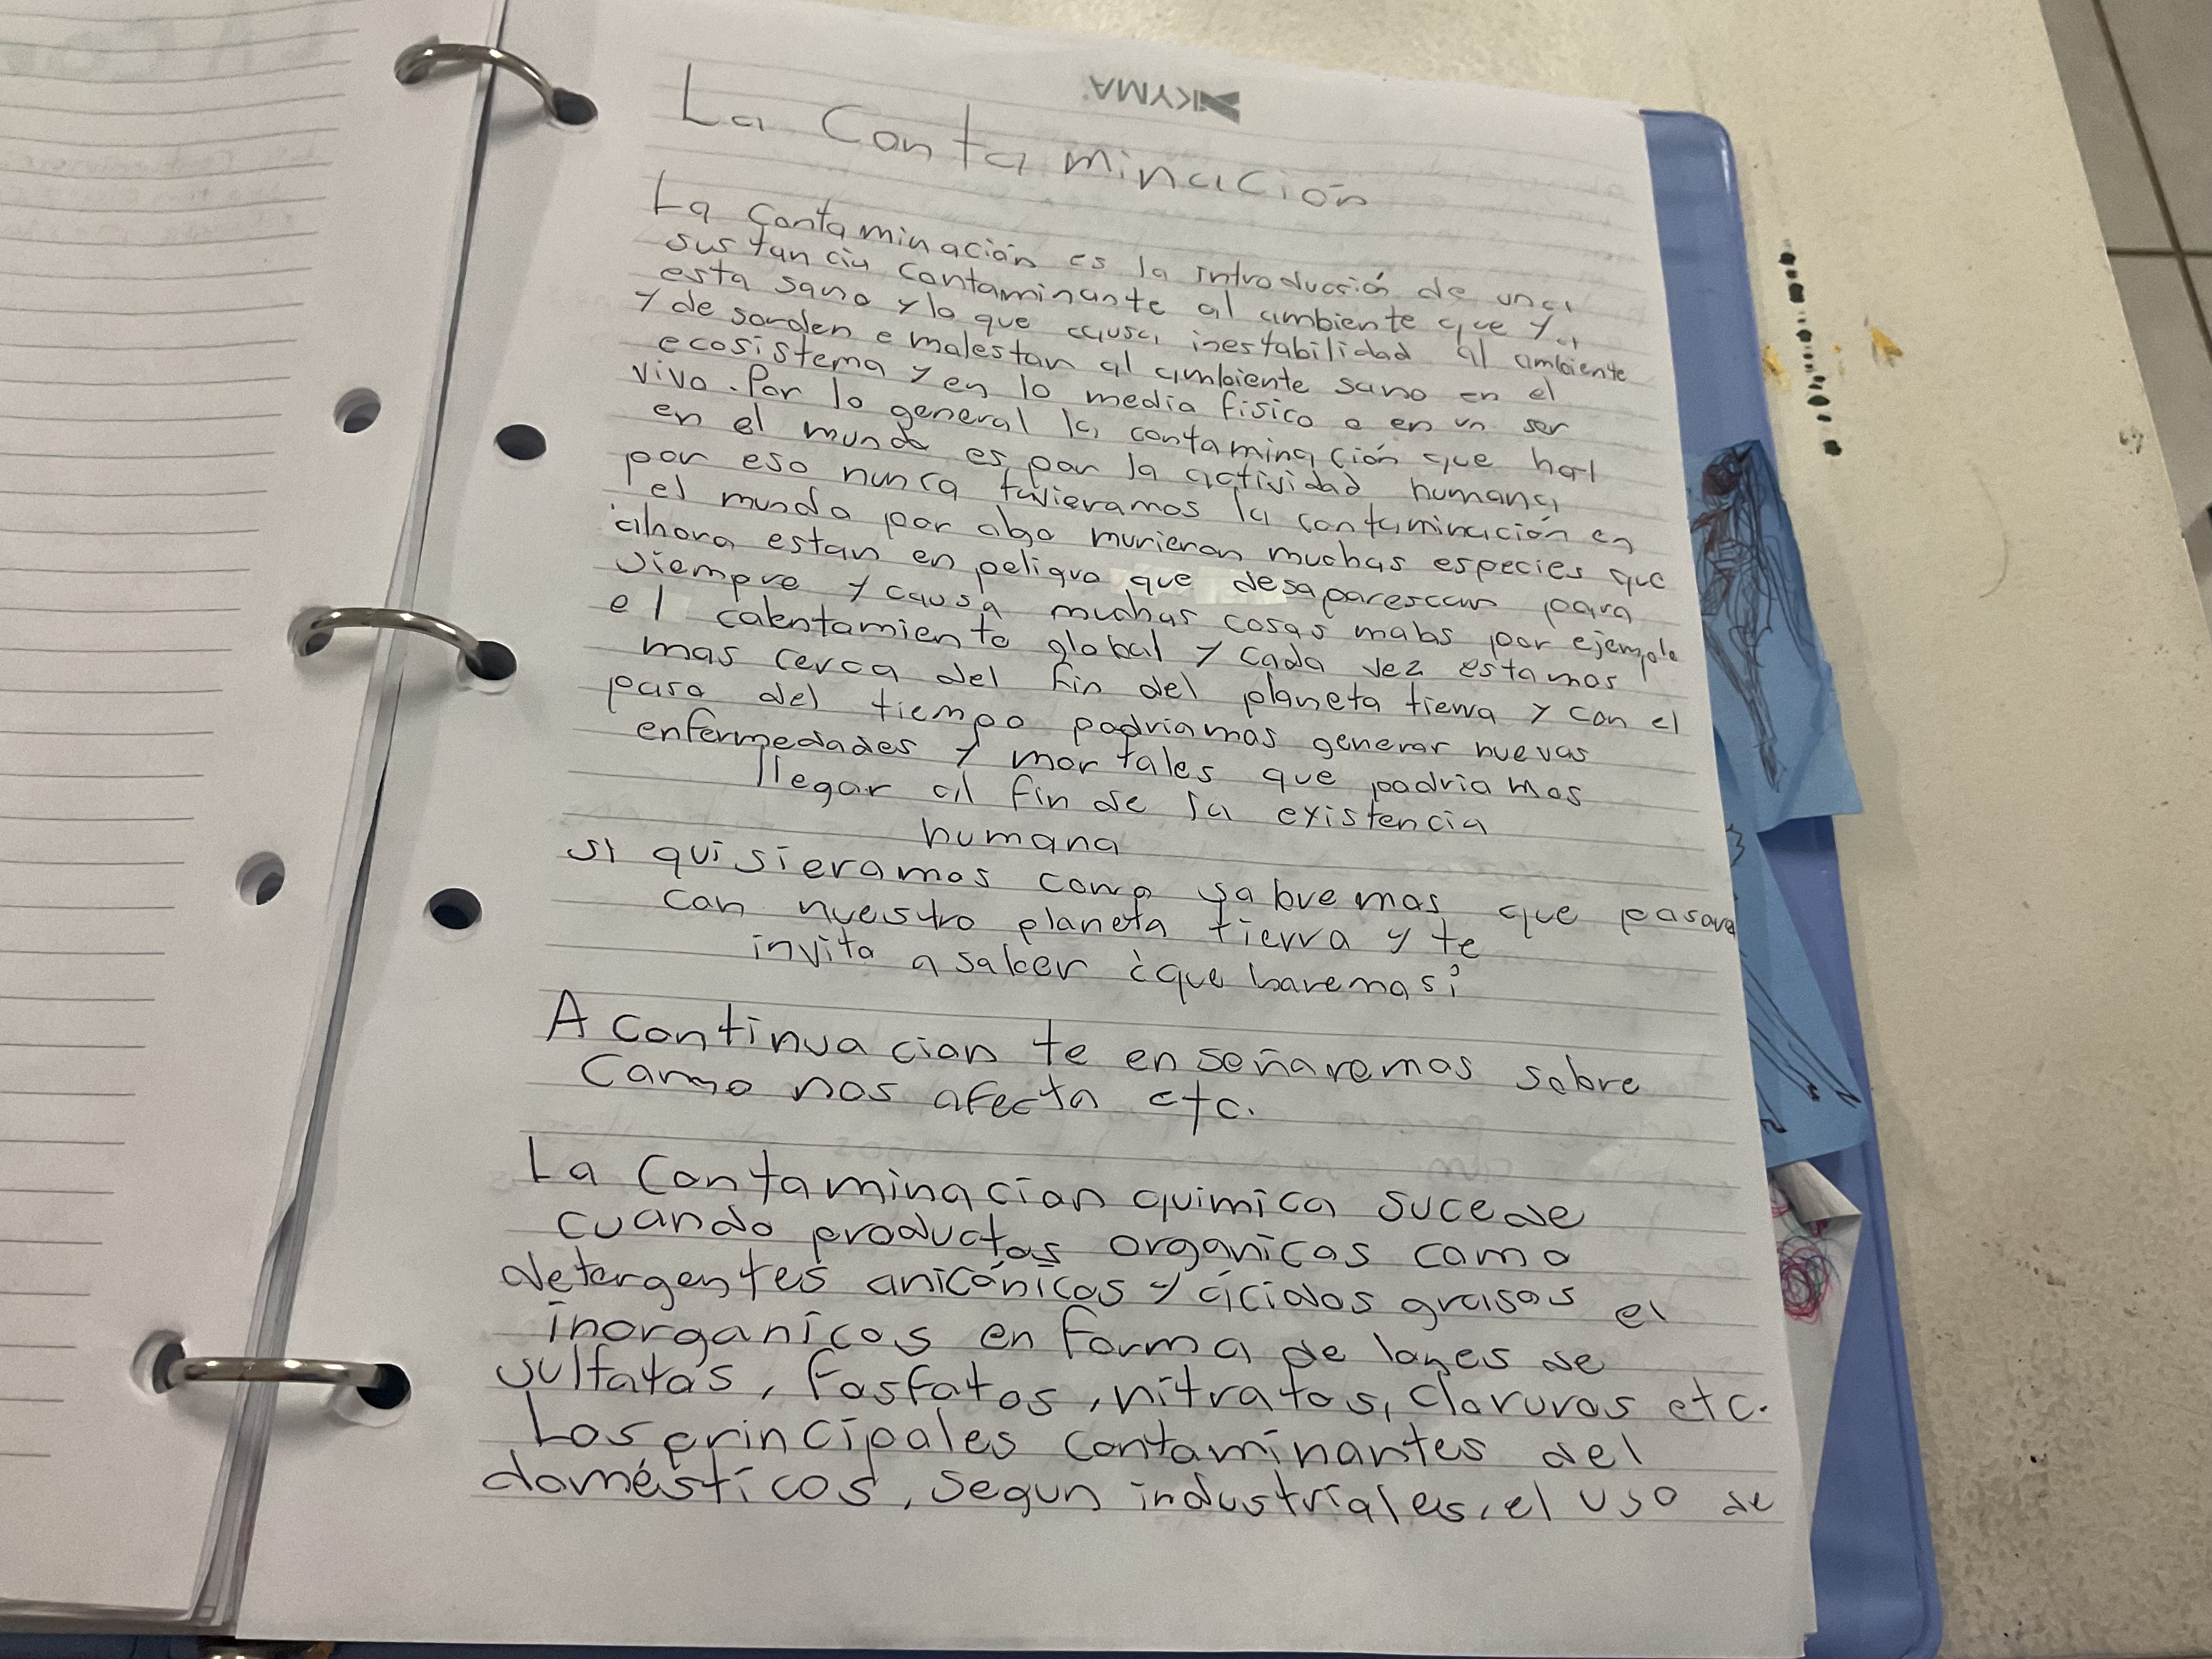 KYMA
La Contaminación
La contaminación es la introducción de una
sustancia contaminante al ambiente que ya
esta sano y lo que causa inestabilidad al ambiente
y de sorden e malestar al ambiente sano en el
ecosistema y en lo media fisico o en un ser
vivo. Por lo general la contaminación que hay
en el mundo es por la actividad humana
por eso nunca tuvieramos la contaminación en
el mundo por algo murieron muchas especies que
ahora estan en peligro que desaparescan para
siempre y causa muchas cosas malas por ejemplo
el calentamiento global y cada vez estamos
mas cerca del fin del planeta tierra y con el
paso del tiempo podriamos generar nuevas
enfermedades y mortales que podriamos
llegar al fin de la existencia
humana
si quisieramos como sabremos que pasara
con nuestro planeta tierra y te
invito a saber ¿que haremos?
A continuacion te enseñaremos sobre
Como nos afecta etc.
La Contaminacion quimica sucede
cuando productos organicos como
detergentes anicónicos y ácidos grasos el
inorganicos en forma de lones de
sulfatos, fosfatos, nitratos, cloruros etc.
Los principales contaminantes del
domésticos, segun industriales, el uso de